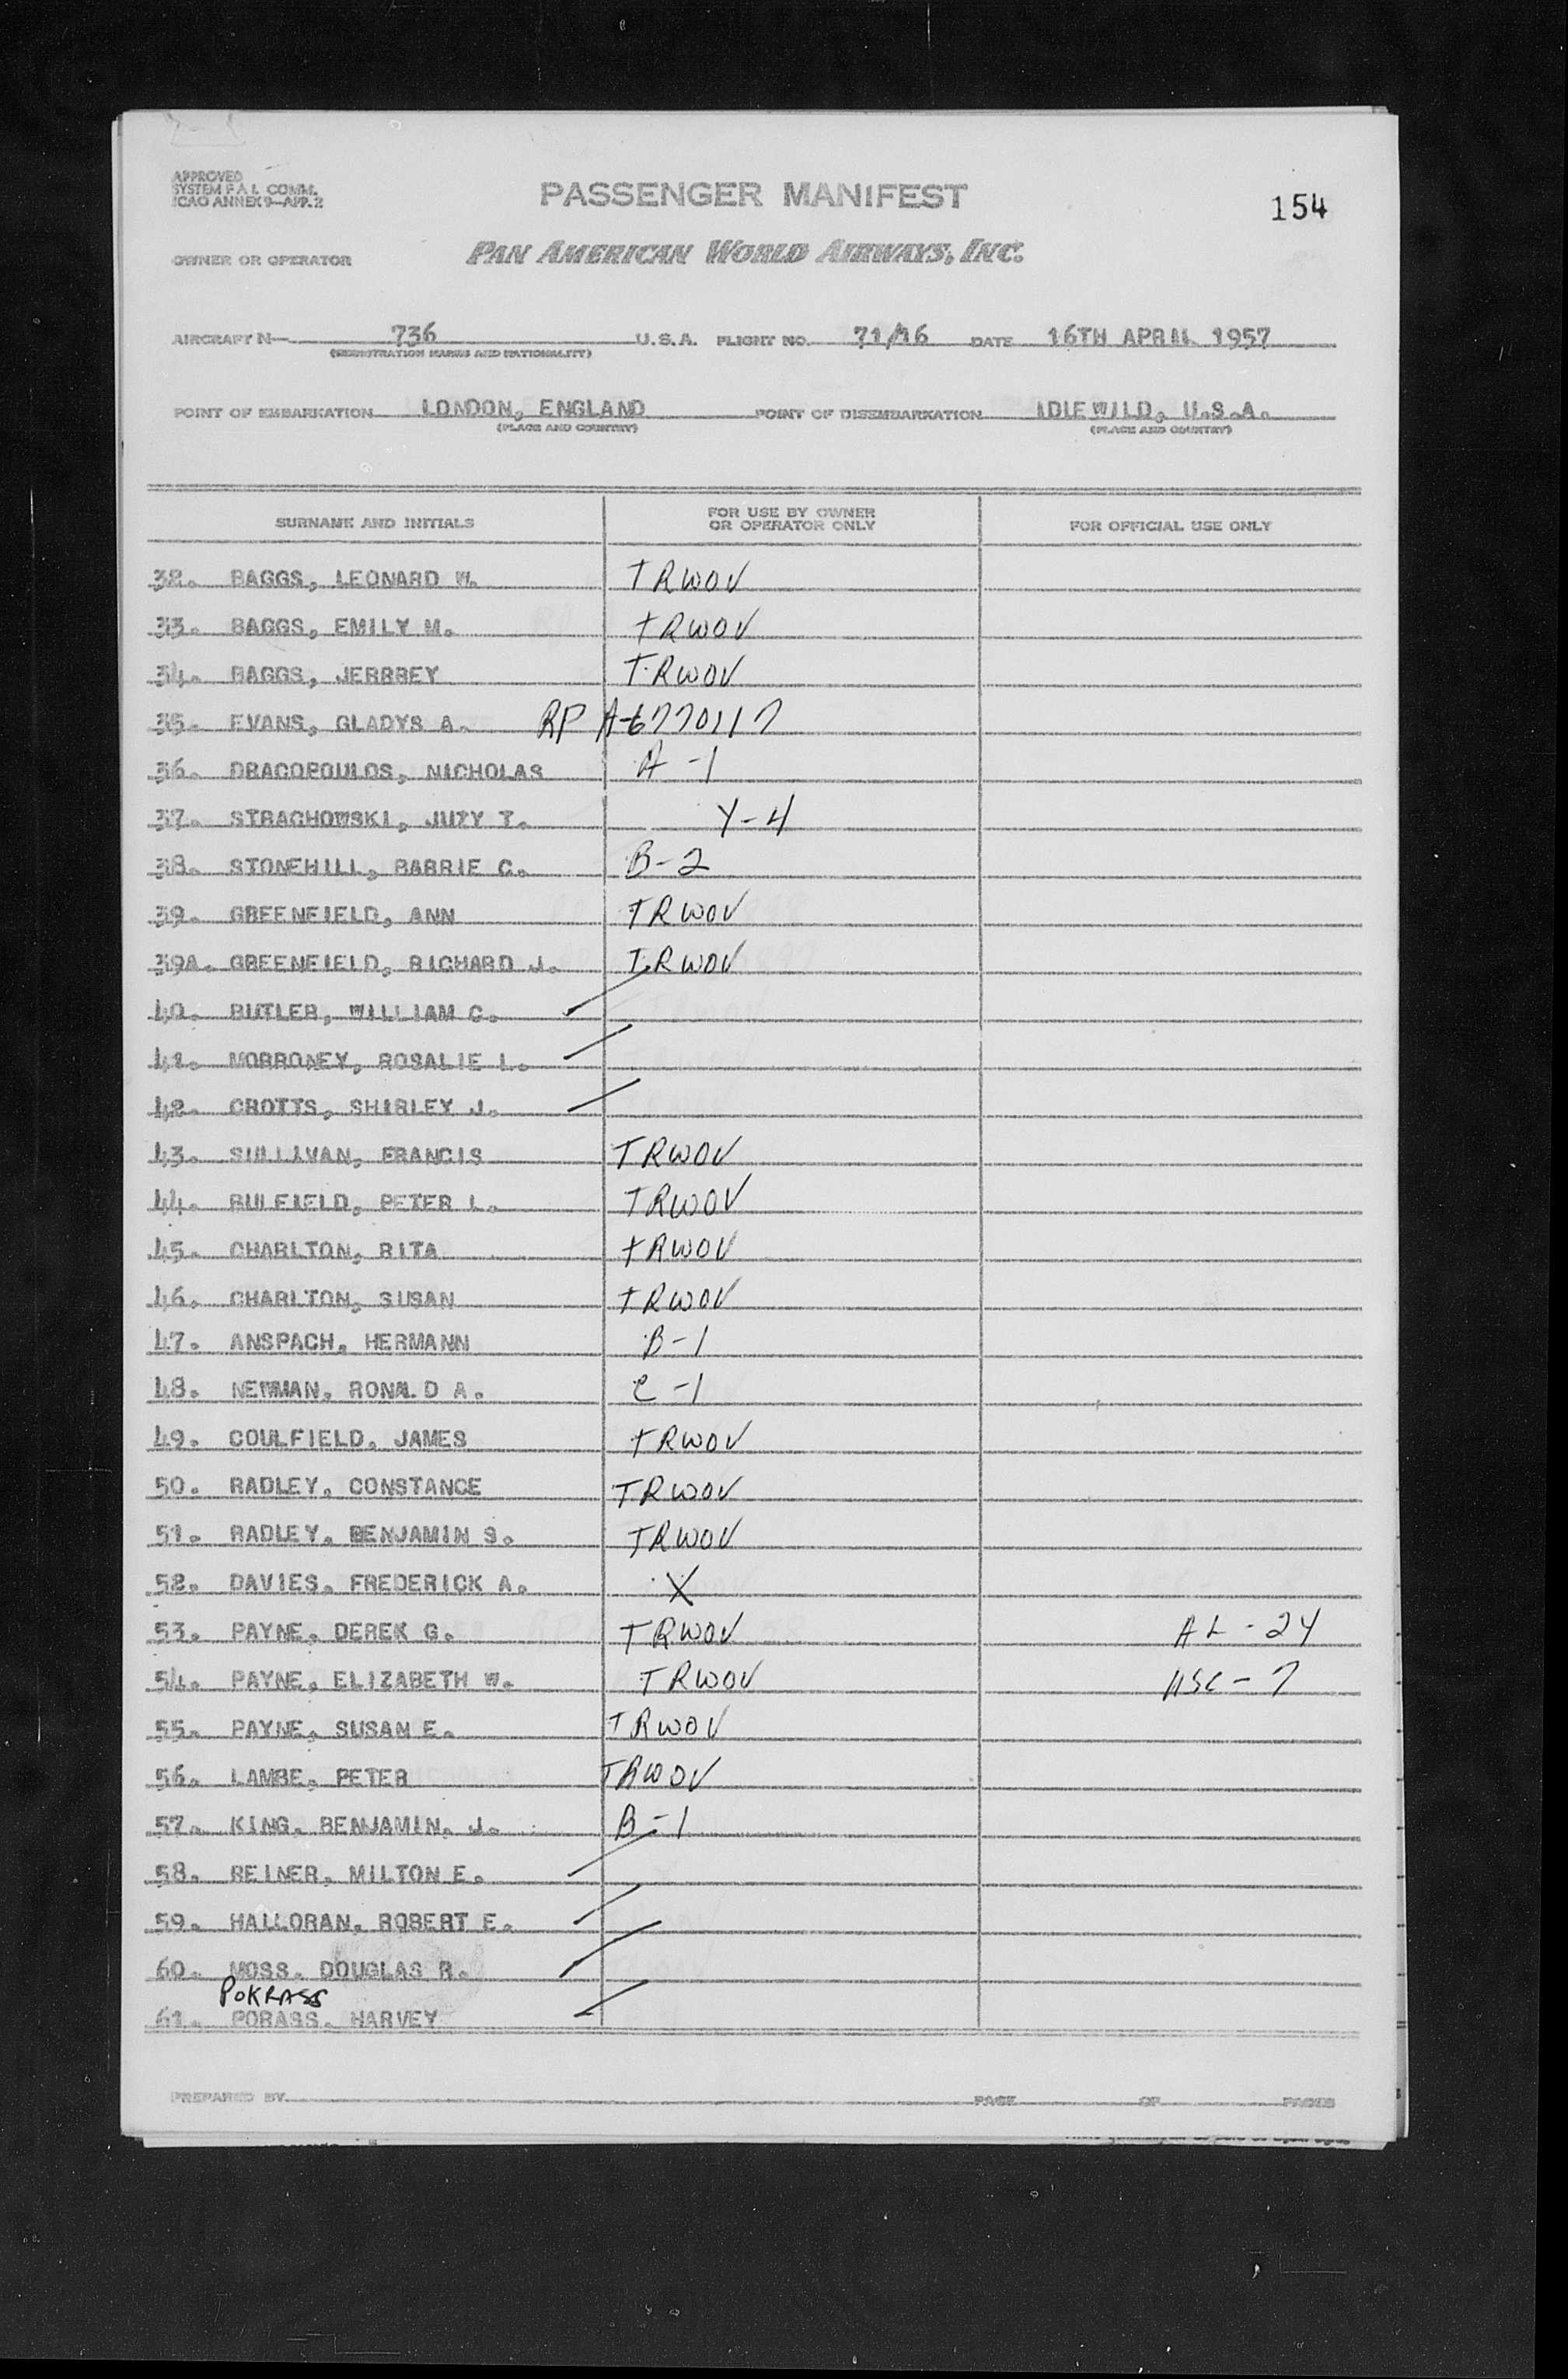 APPROVED
SYSTEM F A L COMM.
ICAO ANNEX 9—APP. 2
PASSENGER MANIFEST
154
OWNER OR OPERATOR
PAN AMERICAN WORLD AIRWAYS, INC.
AIRCRAFT N— 736 U.S.A. FLIGHT NO. 71/16 DATE 16TH APRIL 1957
(REGISTRATION MARKS AND NATIONALITY)
POINT OF EMBARKATION LONDON, ENGLAND POINT OF DISEMBARKATION IDLEWILD, U.S.A.
(PLACE AND COUNTRY) (PLACE AND COUNTRY)
SURNAME AND INITIALS FOR USE BY OWNER OR OPERATOR ONLY FOR OFFICIAL USE ONLY
32. BAGGS, LEONARD W. TRWOV
33. BAGGS, EMILY M. TRWOV
34. BAGGS, JERRREY TRWOV
35. EVANS, GLADYS A. RP A-6770117
36. DRACOPOULOS, NICHOLAS A-1
37. STRACHOWSKI, JUZY T. Y-4
38. STONEHILL, BARRIE C. B-2
39. GREENFIELD, ANN TRWOV
39A. GREENFIELD, RICHARD J. TRWOV
40. BUTLER, WILLIAM C.
41. MORRONEY, ROSALIE L.
42. CROTTS, SHIRLEY J.
43. SULLIVAN, FRANCIS TRWOV
44. BULFIELD, PETER L. TRWOV
45. CHARLTON, RITA TRWOV
46. CHARLTON, SUSAN TRWOV
47. ANSPACH, HERMANN B-1
48. NEWMAN, RONALD A. C-1
49. COULFIELD, JAMES TRWOV
50. RADLEY, CONSTANCE TRWOV
51. RADLEY, BENJAMIN S. TRWOV
52. DAVIES, FREDERICK A. X
53. PAYNE, DEREK G. TRWOV AL-24
54. PAYNE, ELIZABETH W. TRWOV USC-7
55. PAYNE, SUSAN E. TRWOV
56. LAMBE, PETER TRWOV
57. KING, BENJAMIN, J. B-1
58. REINER, MILTON E.
59. HALLORAN, ROBERT E.
60. MOSS, DOUGLAS R.
POKRASS
61. PORASS, HARVEY
PREPARED BY PAGE OF PAGES